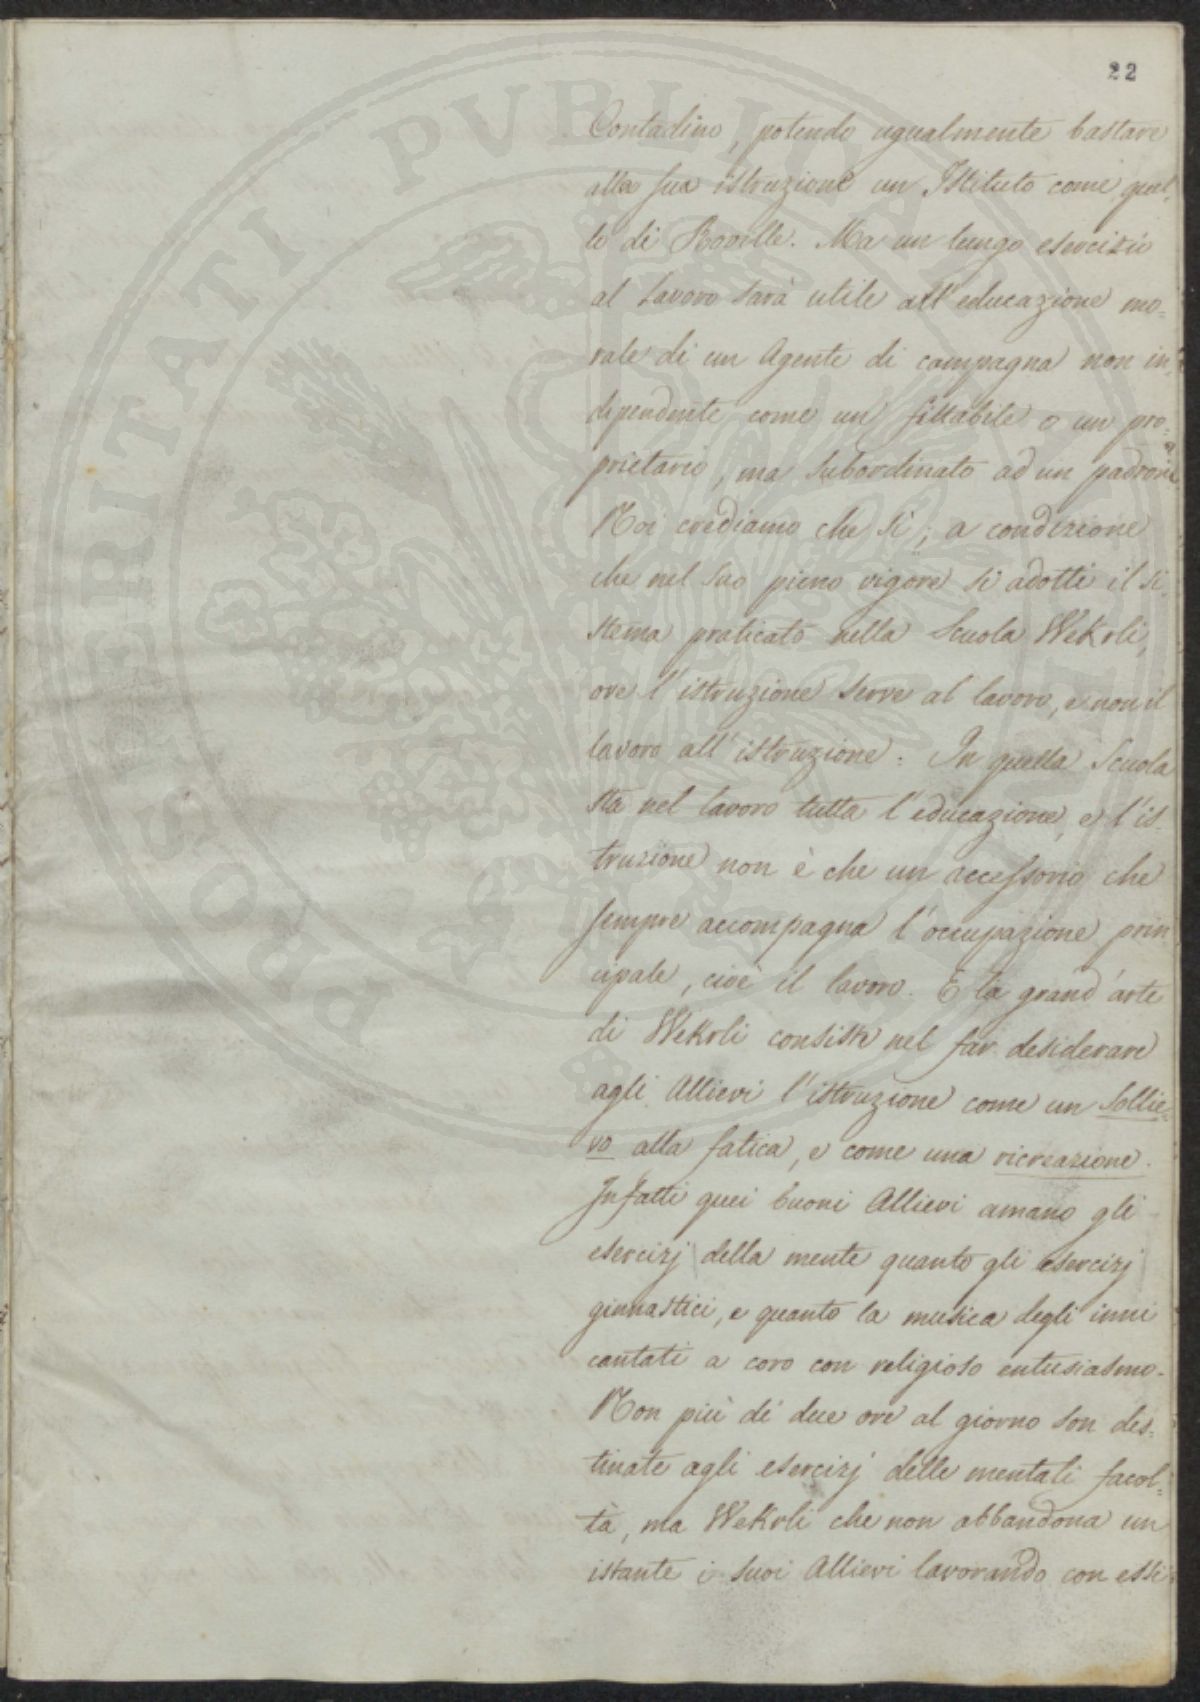 22
Contadino, potendo ugualmente bastare
alla sua istruzione un Istituto come quel,
lo di Roville. Ma un lungo esercizio
al lavoro sarà utile all'educazione mo=
rale di un Agente di campagna non in,
dipendente come un fittabile o un pro=
prietario, ma subordinato ad un padrone
Noi crediamo che sì; a condizione
che nel suo pieno vigore si adotti il si,
stema praticato nella Scuola Wekrli,
ove l'istruzione serve al lavoro, e non il
lavoro all'istruzione: In quella Scuola
sta nel lavoro tutta l'educazione, e l'is-
truzione non è che un accessorio che
sempre accompagna l'occupazione prin
cipale, cioè il lavoro. E la grand'arte
di Wekrli consiste nel far desiderare
agli Allievi l'istruzione come un Sollie=
vo alla fatica, e come una ricreazione.
Infatti quei buoni Allievi amano gli
esercizj della mente quanto gli esercizj
ginnastici, e quanto la musica degli inni
cantati a coro con religioso entusiasmo.
Non più di due ore al giorno son des=
tinate agli esercizj delle mentali facol=
tà, ma Wekrli che non abbandona un
istante i suoi Allievi lavorando con essi
PROSPERITATI PVBLICAE